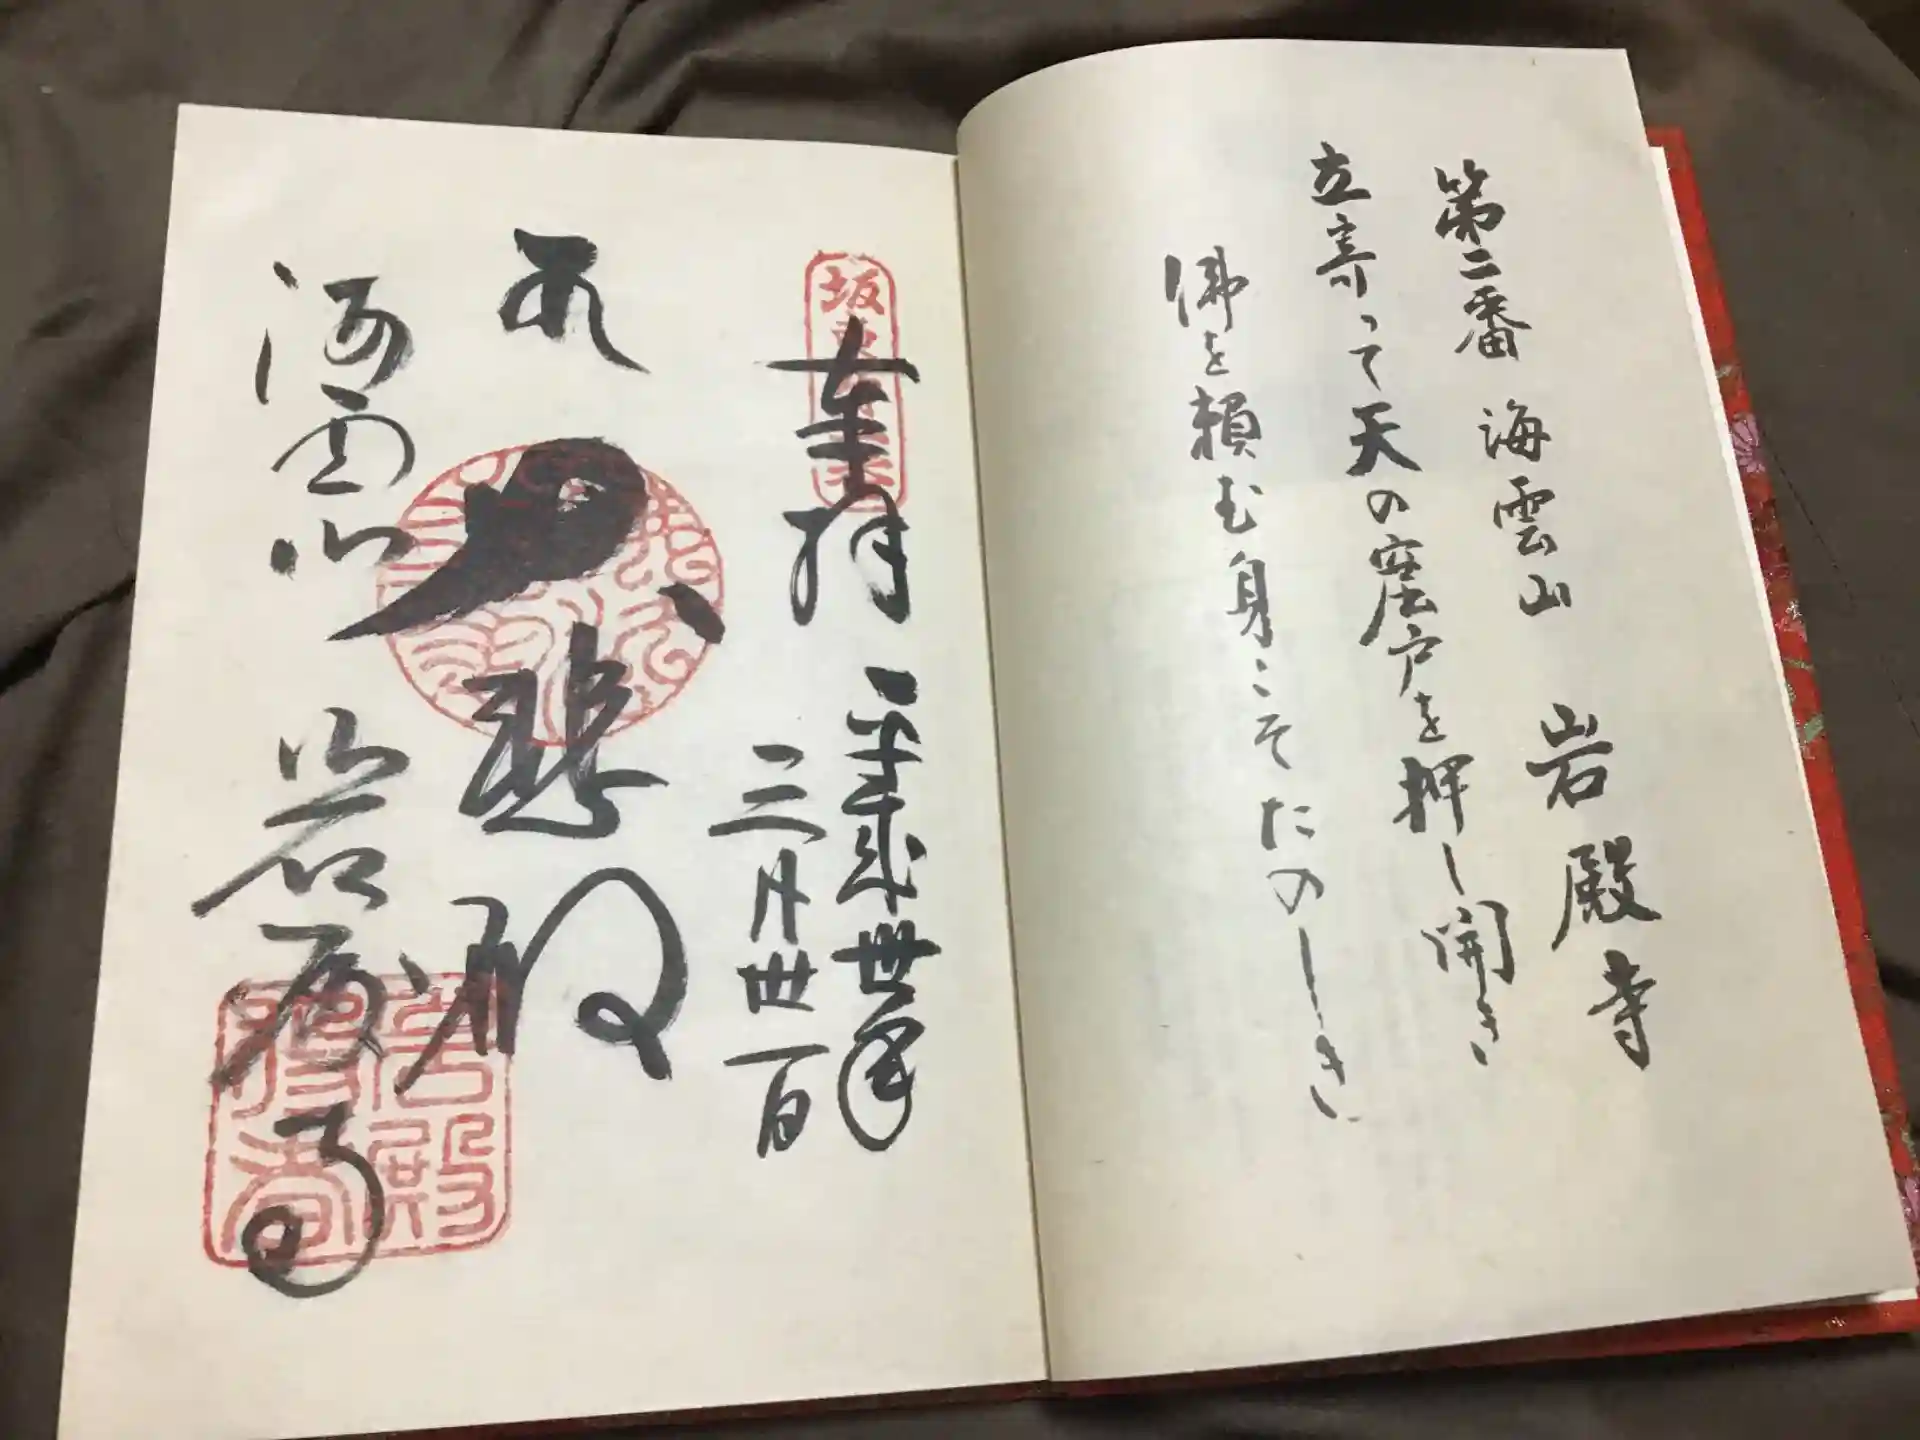 第二番 海雲山 岩殿寺
立寄って天の窟戸を押し開き
佛を頼む身こそたのしき
坂東
奉拝 平成丗年
三月丗一日
大悲殿
海雲山 岩殿寺